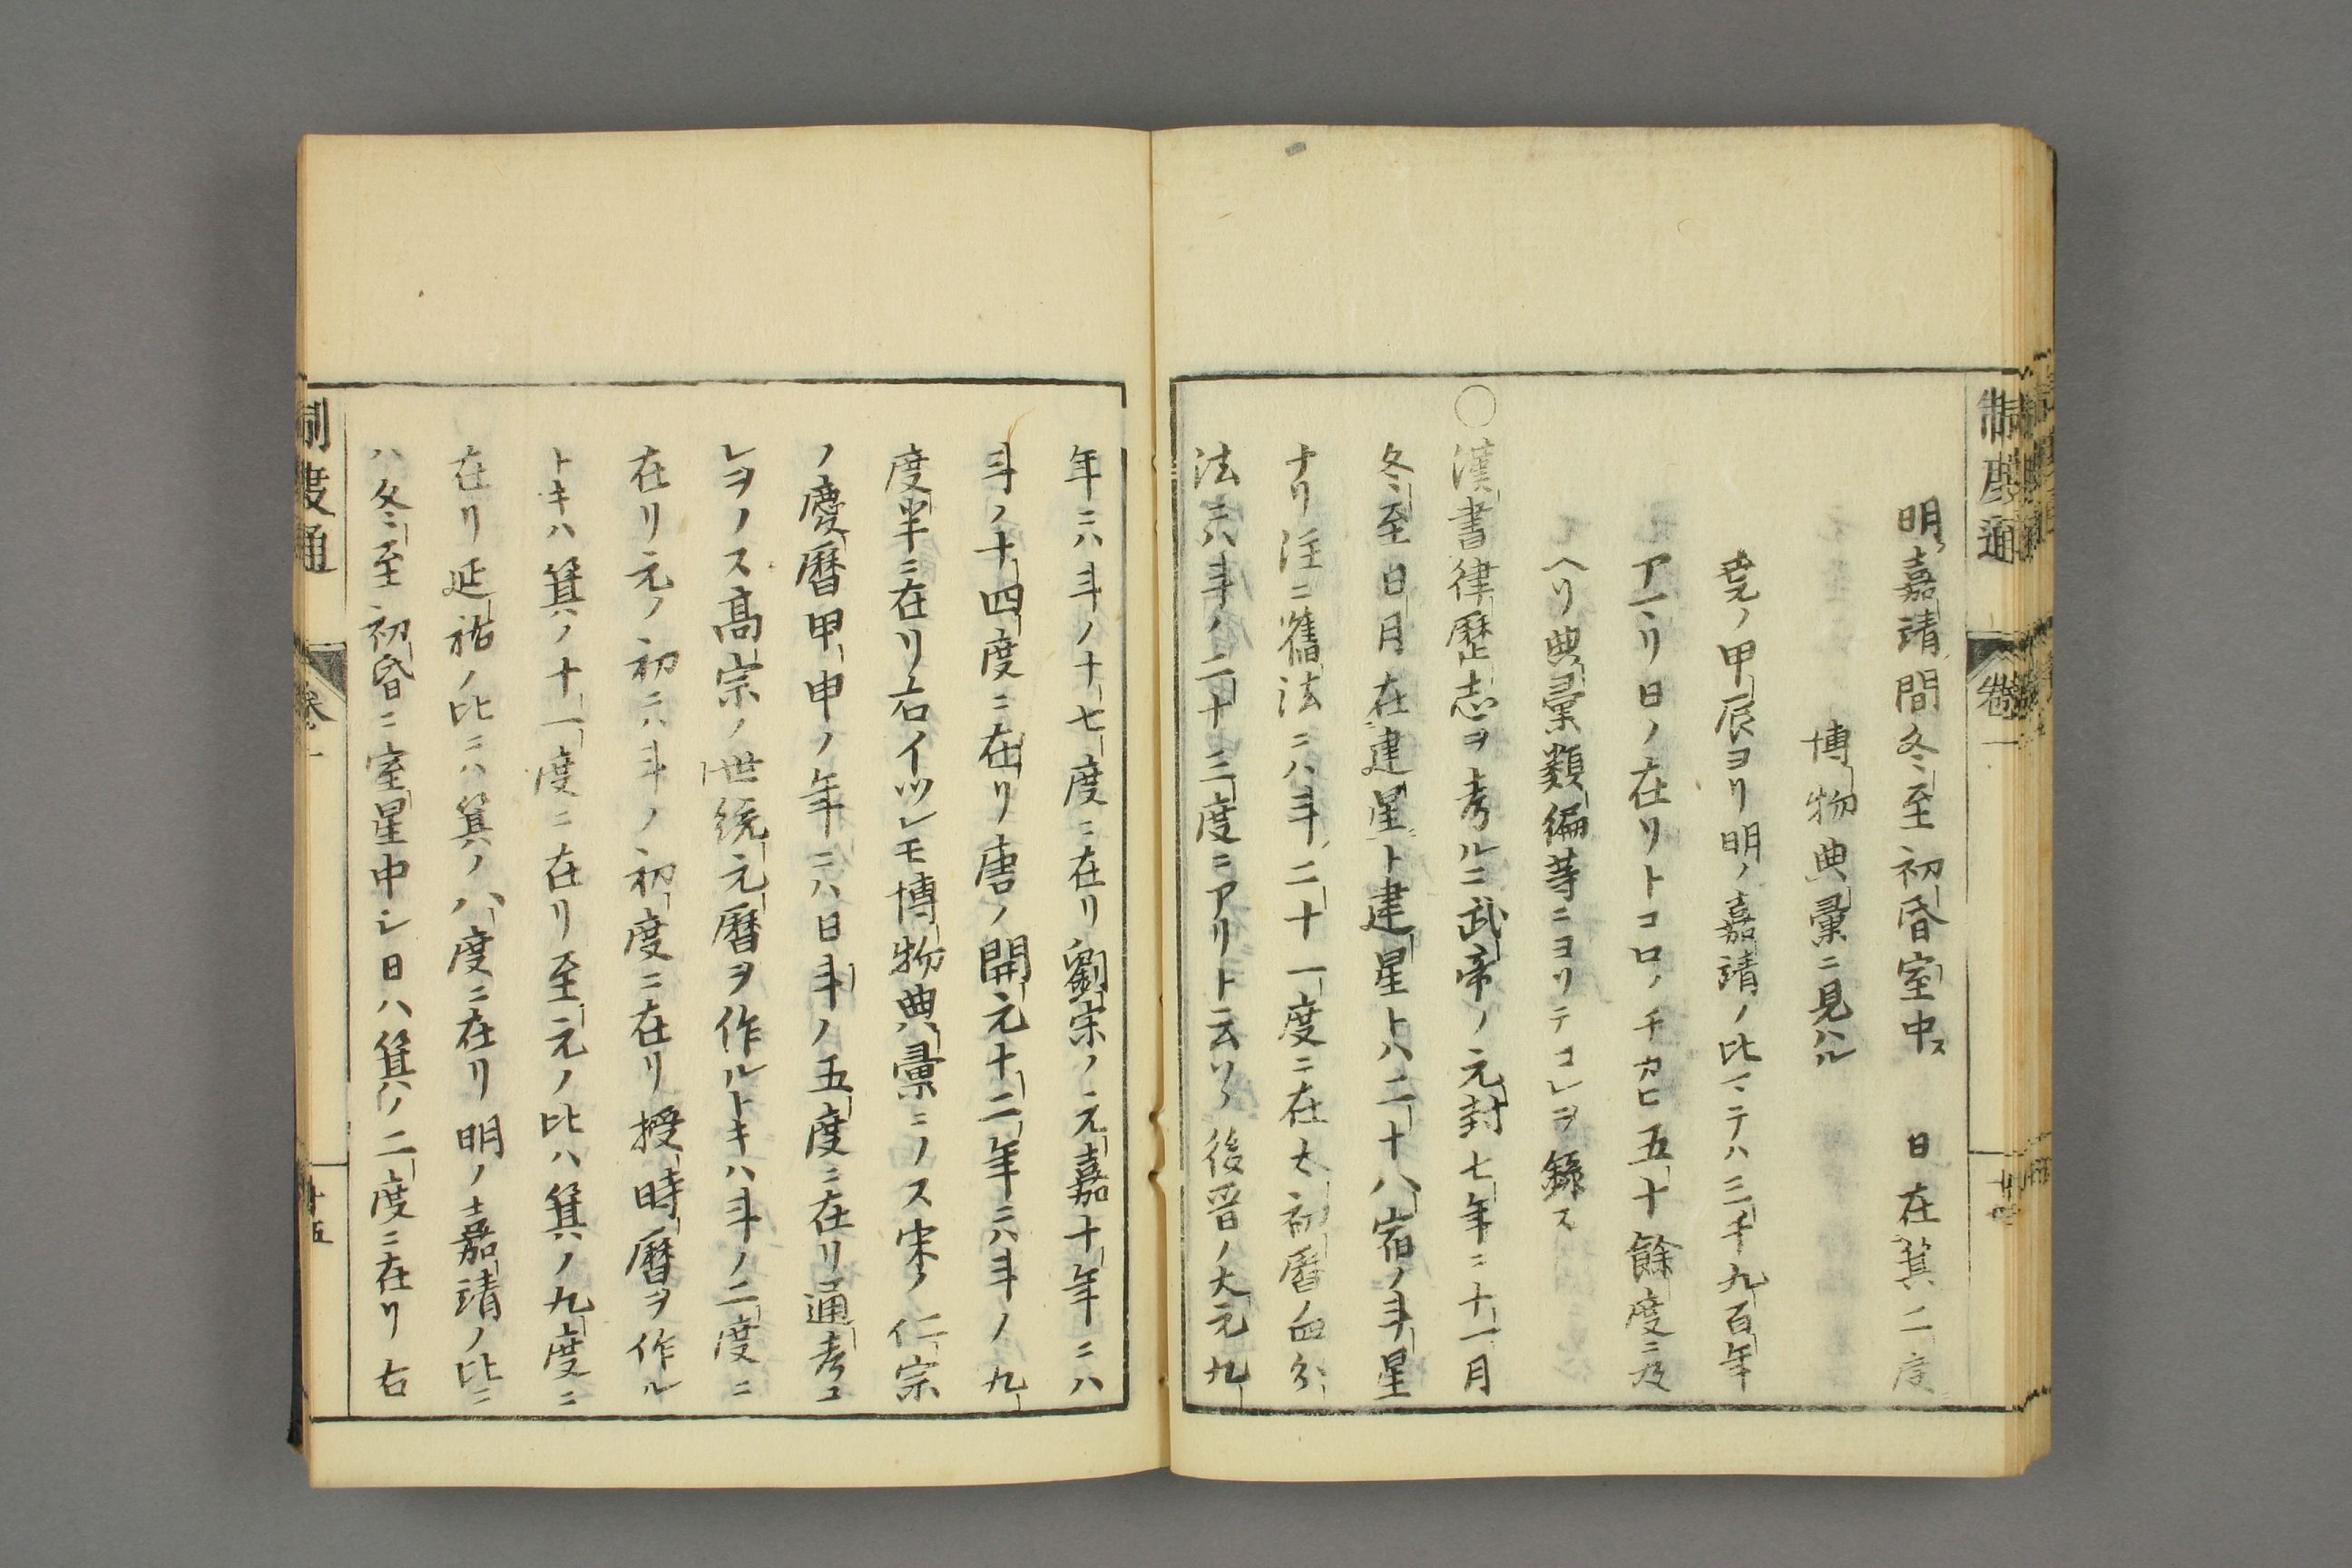 制度通 卷一 十四
明嘉靖間冬至初昏室中ス 日在箕二度
博物典彙ニ見ハル
堯ノ甲辰ヨリ明ノ嘉靖ノ比マテハ三千九百年
アマリ日ノ在リトコロノチカヒ五十餘度ニ及
ヘリ典彙類編等ニヨリテコレヲ録ス
○漢書律歷志ヲ考ルニ武帝ノ元封七年ニ十一月
冬至日月在建星ト建星トハ二十八宿ノ斗星
ナリ注ニ舊法ニハ斗二十一度ニ在大初曆
法ニハ斗ノ二十三度ニアリト云リ後晉ノ大元九
年ニハ斗ノ十七度ニ在リ劉宋ノ元嘉十年ニハ
斗ノ十四度ニ在リ唐ノ開元十二年ニハ斗ノ九
度半ニ在リ右イツレモ博物典彙ニノス宋ノ仁宗
ノ慶曆甲申ノ年ニハ日斗ノ五度ニ在リ通考コ
レヲノス高宗ノ世統元曆ヲ作ルトキハ斗ノ二度ニ
在リ元ノ初ニハ斗ノ初度ニ在リ授時曆ヲ作ル
トキハ箕ノ十一度ニ在リ至元ノ比ハ箕ノ九度ニ
在リ延祐ノ比ニハ箕ノ八度ニ在リ明ノ嘉靖ノ比ニ
ハ冬至初昏ニ室星中シ日ハ箕ノ二度ニ在リ右
制度通 卷一 十五